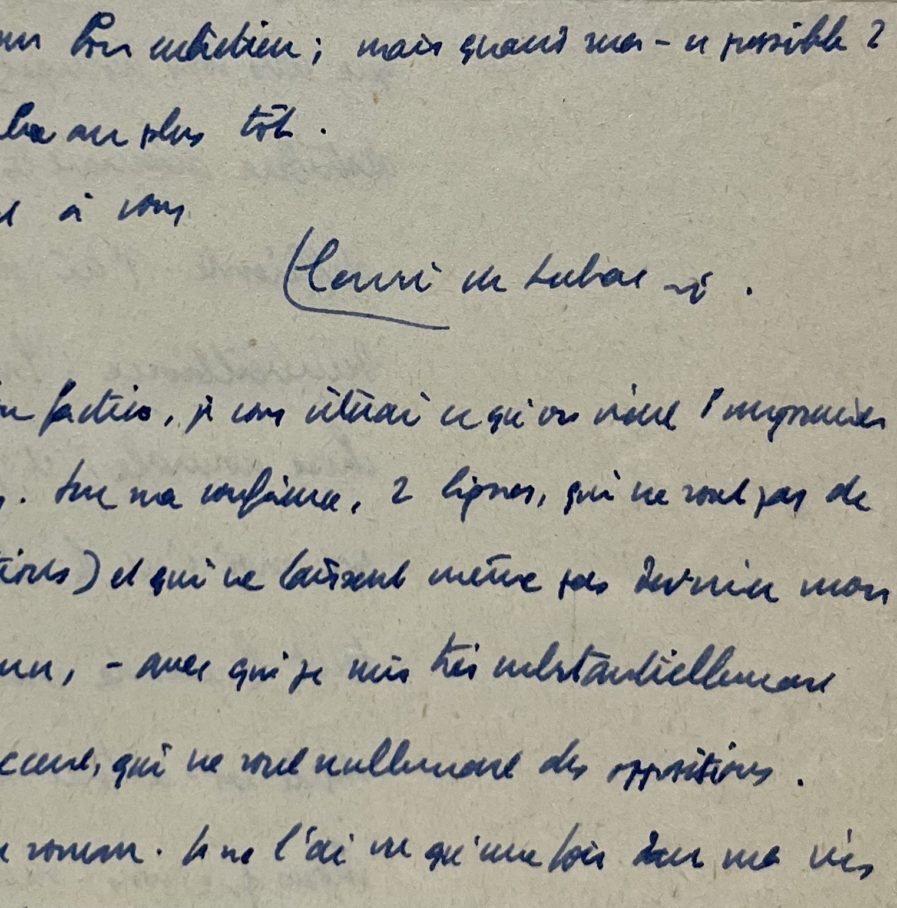 mais quand sera-ce possible ?
au plus tôt.
à vous
Henri de Lubac sj.
je vous citerai ce qu'on vient l'imprimer
. Sur ma confiance, 2 lignes, qui ne sont pas de
et qui ne laissent même pas deviner mon
- avec qui je suis très substantiellement
qui ne sont nullement des oppositions.
Je ne l'ai vu qu'une fois dans ma vie